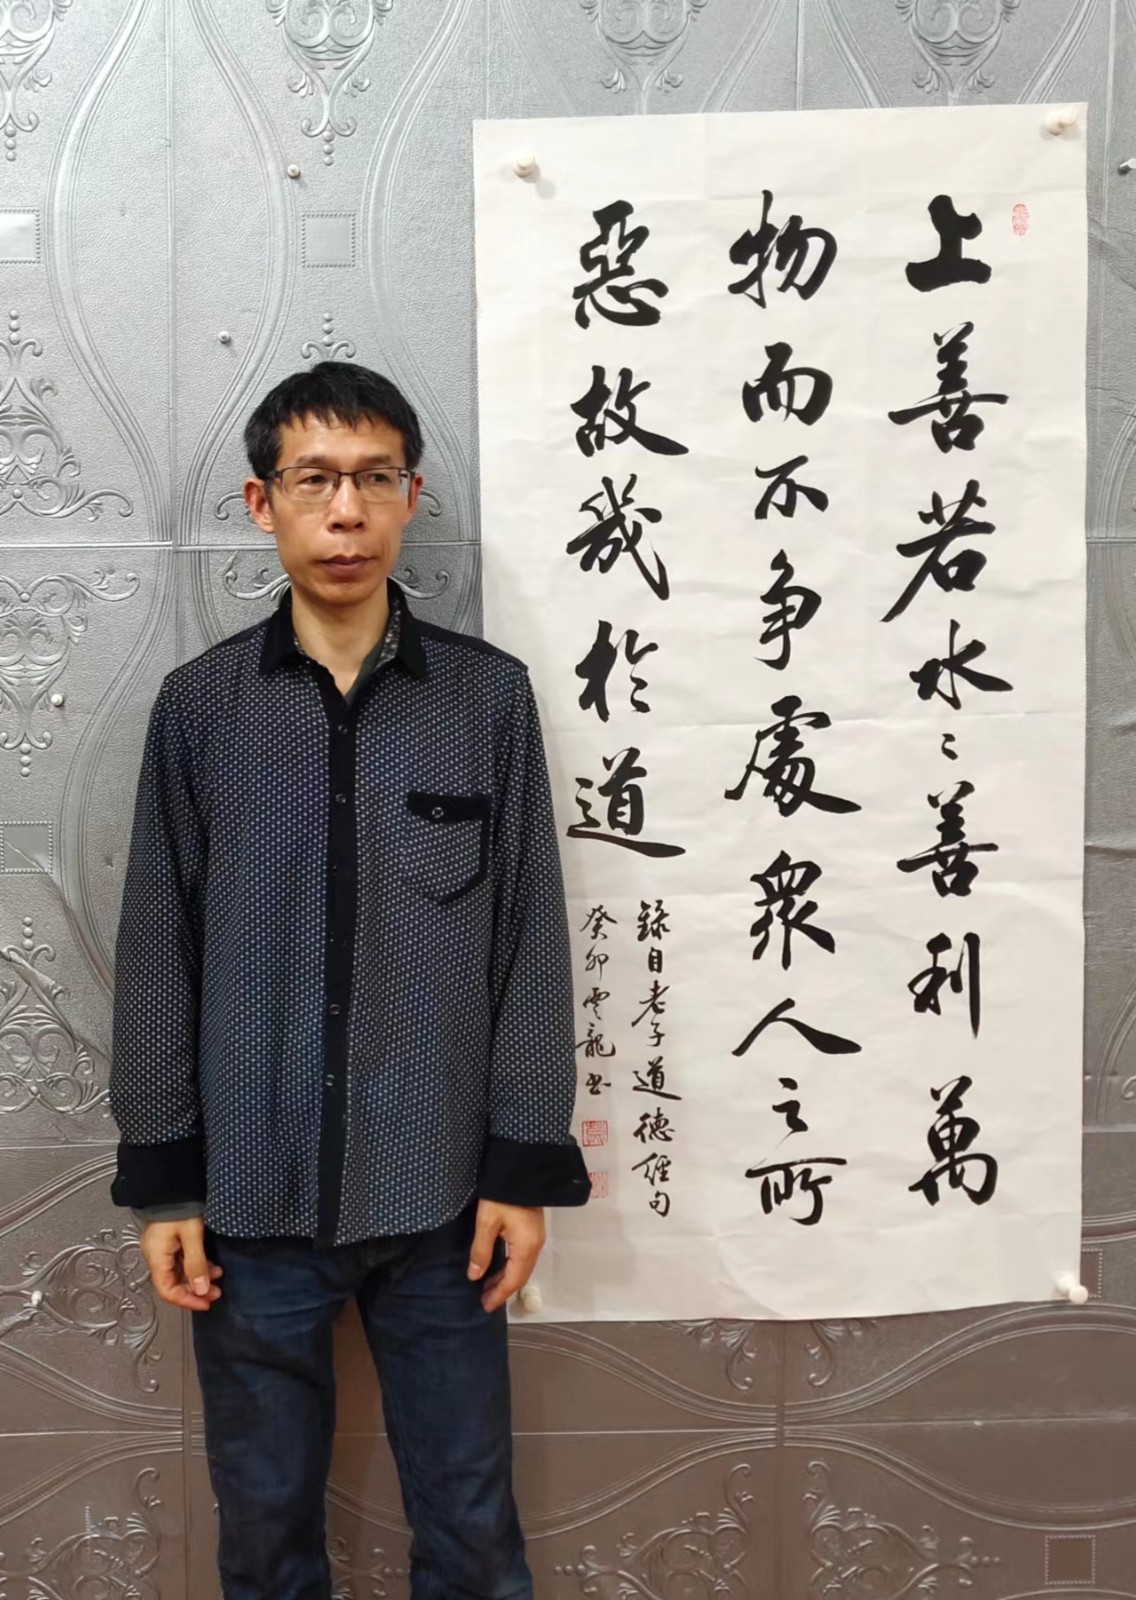 上善若水〻善利萬
物而不争處衆人之所
惡故幾於道
錄自老子道德經句
癸卯雲龍书